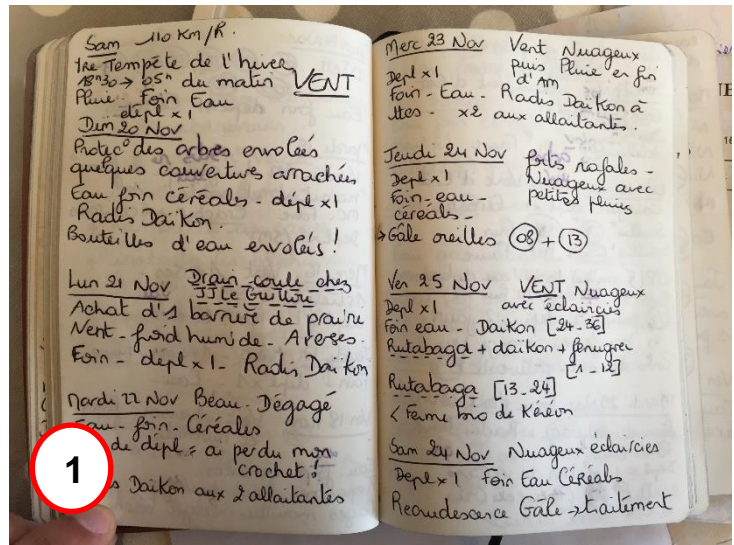 Sam 110 Km/h.
1re Tempête de l'hiver
18h30 → 05h du matin VENT
Pluie Foin Eau
dépl x 1
Dim 20 Nov
Protec° des arbres envolées
quelques couvertures arrachées
Eau foin céréales - dépl x 1
Radis Daïkon.
Bouteilles d'eau envolés !
Lun 21 Nov Drain coule chez
JJ Le
Achat d'1 barrière de prairie
Vent - froid humide - Averses.
Foin - dépl x 1 - Radis Daïkon
Mardi 22 Nov Beau - Dégagé
Eau - foin - Céréales
de dépl = ai perdu mon
crochet !
Daïkon aux 2 allaitantes
1
Merc 23 Nov Vent Nuageux
Depl x 1 puis Pluie en fin
d'Am
Foin - Eau - Radis Daïkon à
ttes - x2 aux allaitantes.
Jeudi 24 Nov forts rafales -
Depl x 1 Nuageux avec
Foin - eau - petites pluies
céréals -
→ Gâle oreilles 08 + 13
Ven 25 Nov VENT Nuageux
Depl x 1 avec éclaircies
Foin eau - Daikon [24-36]
Rutabaga + daïkon + fenugrec
[1-12]
Rutabaga [13-24]
< Ferme Bio de Kéréon
Sam 24 Nov Nuageux éclaircies
Depl x 1 Foin Eau Céréales
Recrudescence Gâle → traitement